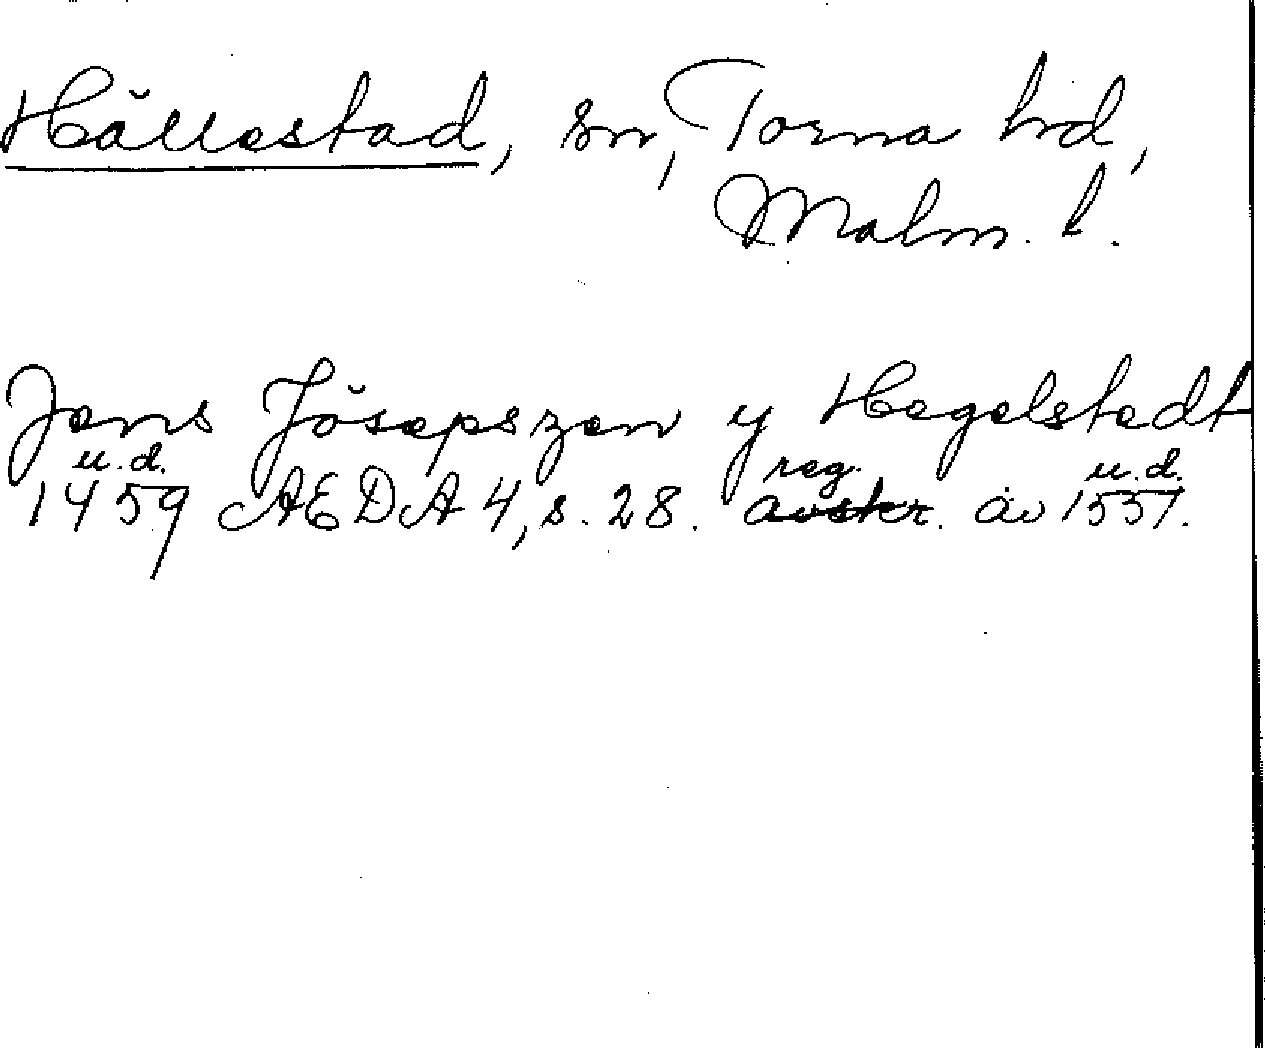 Hällestad, sn, Torna hd,
Malm. l.
Jens Jösepszen y Hegelstedt
u.d. reg. u.d.
1459 AEDA 4, s. 28. avskr. av 1551.